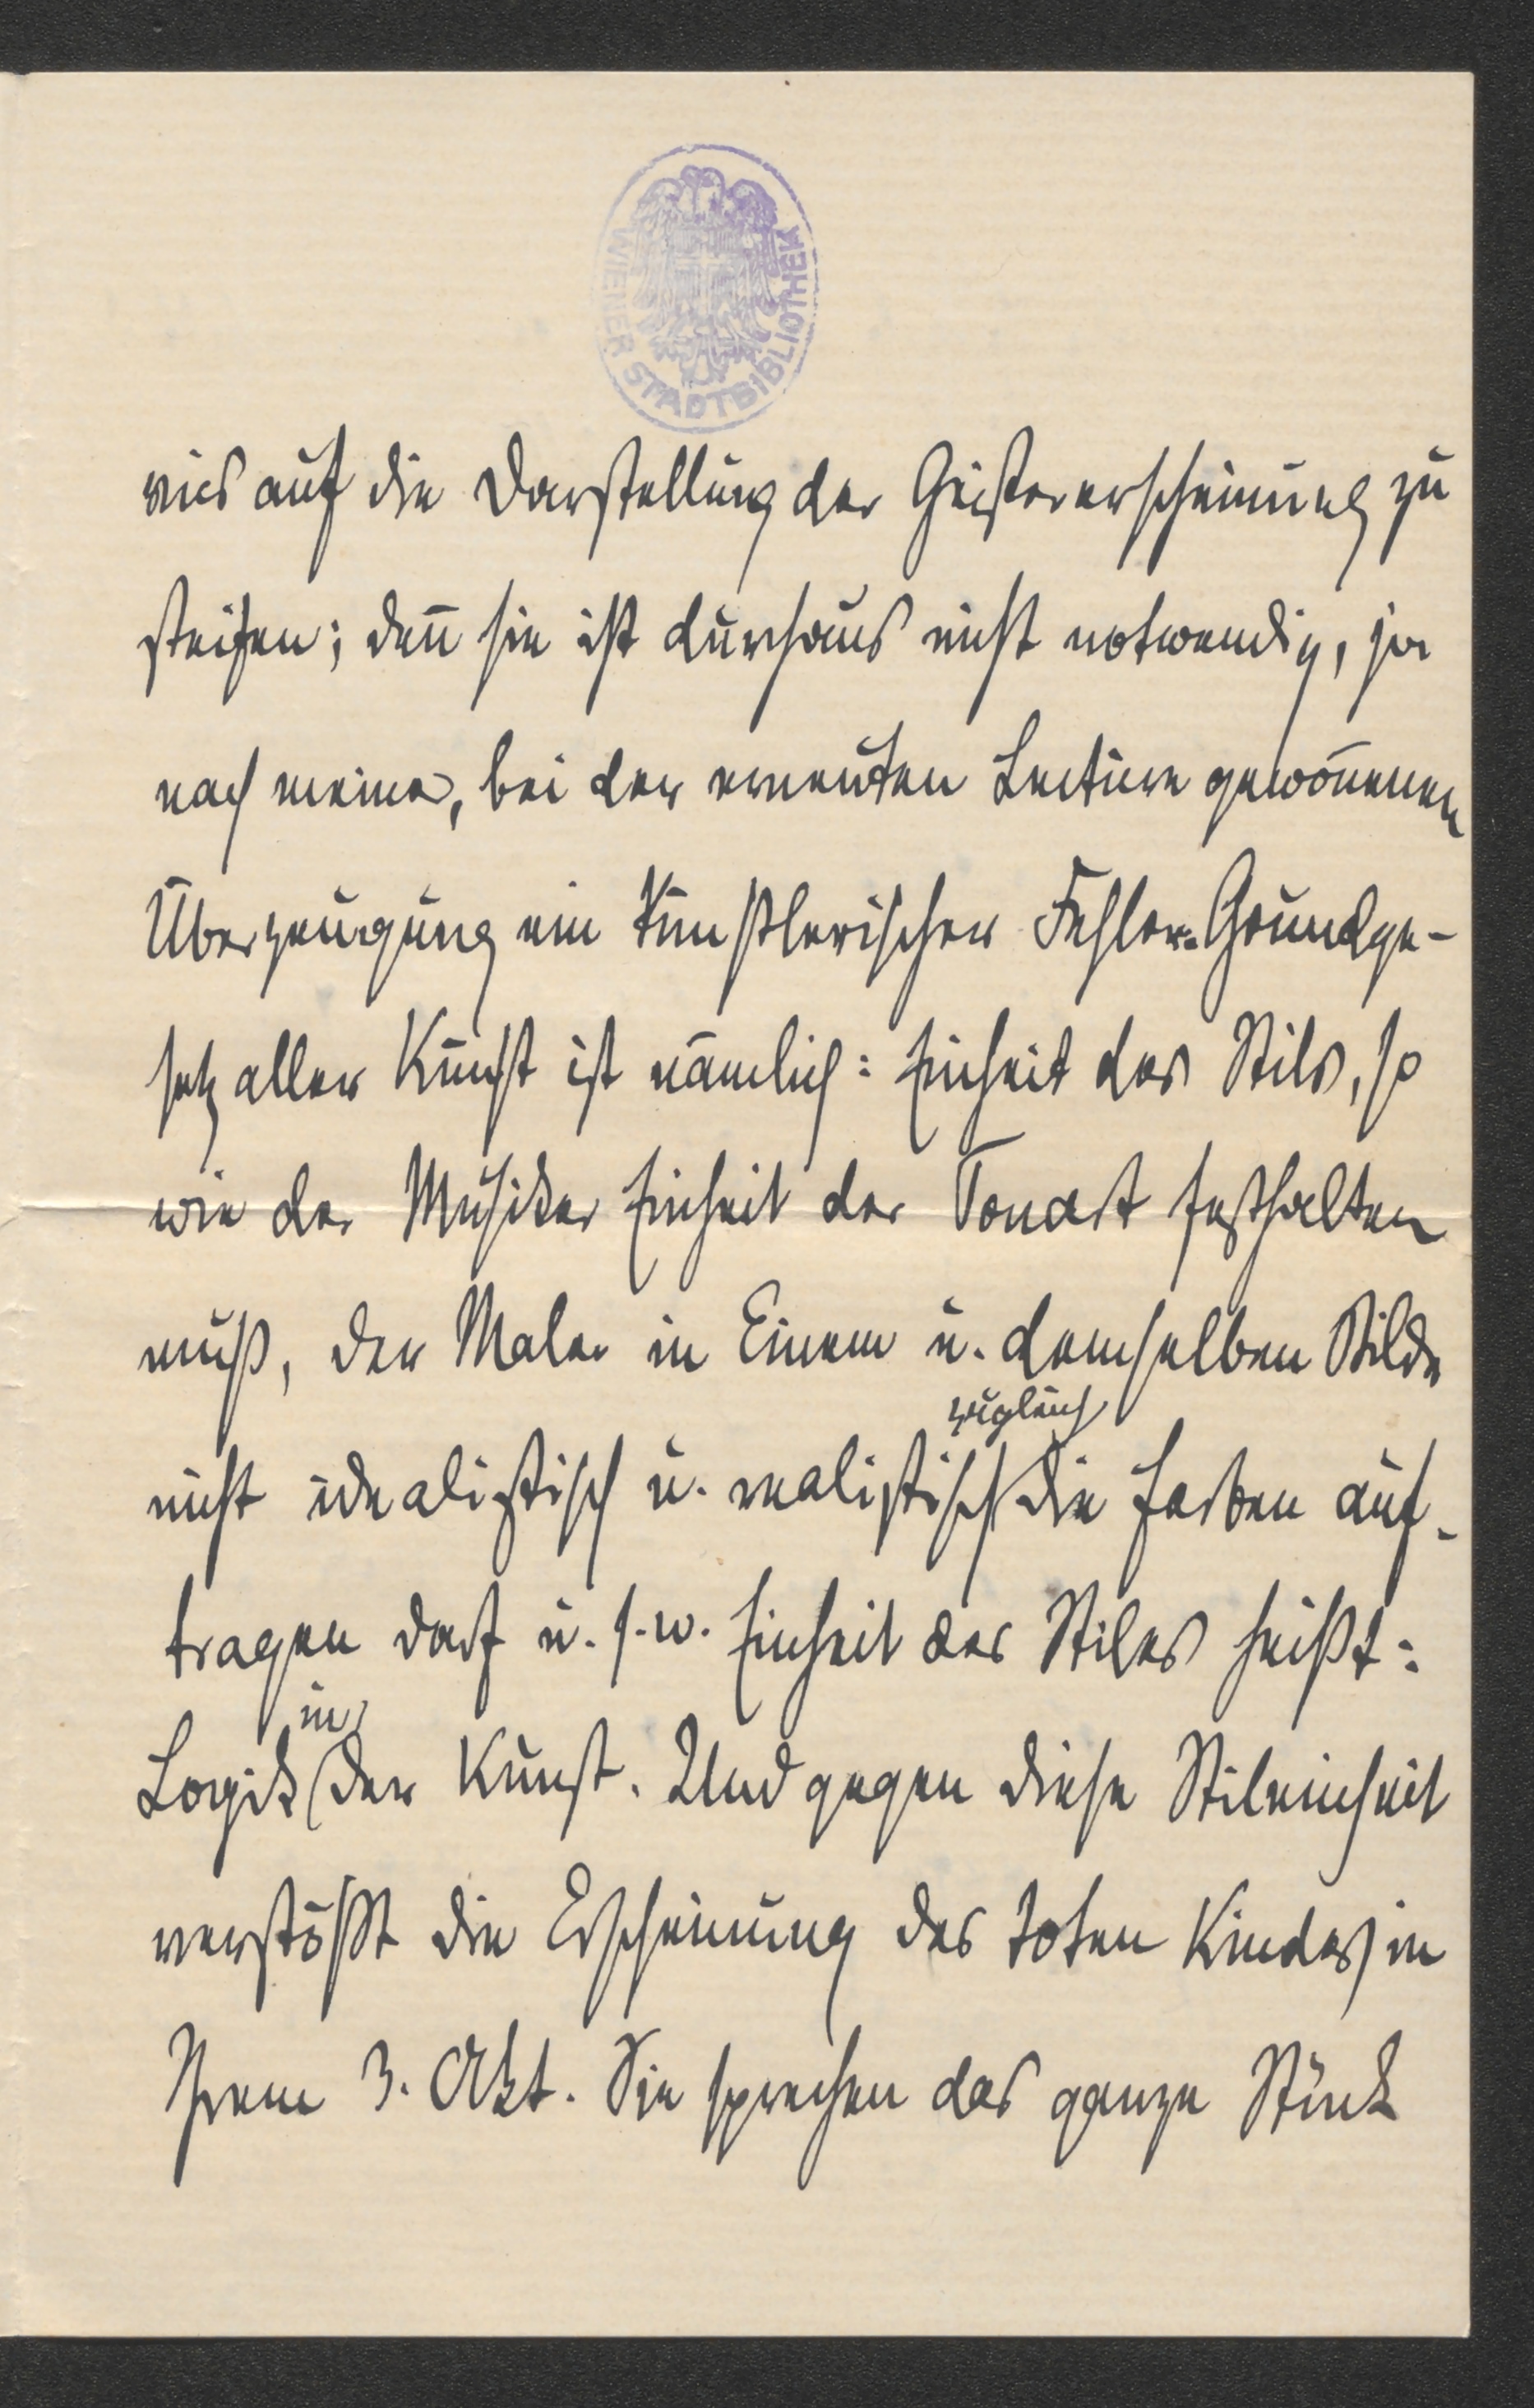 WIENER STADTBIBLIOTHEK
uns auf die Darstellung der Geistererscheinung zu
steifen; deñ sie ist durchaus nicht notwendig, ja
nach meiner, bei der erneuten Lectüre gewoñenen
Überzeugung ein künstlerischer Fehler. Grundge-
setz aller Kunst ist nämlich: Einheit des Stils, so
wie der Musiker Einheit der Tonart festhalten
muß, der Maler in Einem u. demselben Bilde
zugleich
nicht idealistisch u. realistisch die Farben auf-
tragen darf u. s. w. Einheit des Stiles heißt:
in
Logik der Kunst. Und gegen diese Stileinheit
verstößt die Erscheinung des toten Kindes in
Ihrem 3. Akt. Sie sprechen das ganze Stück